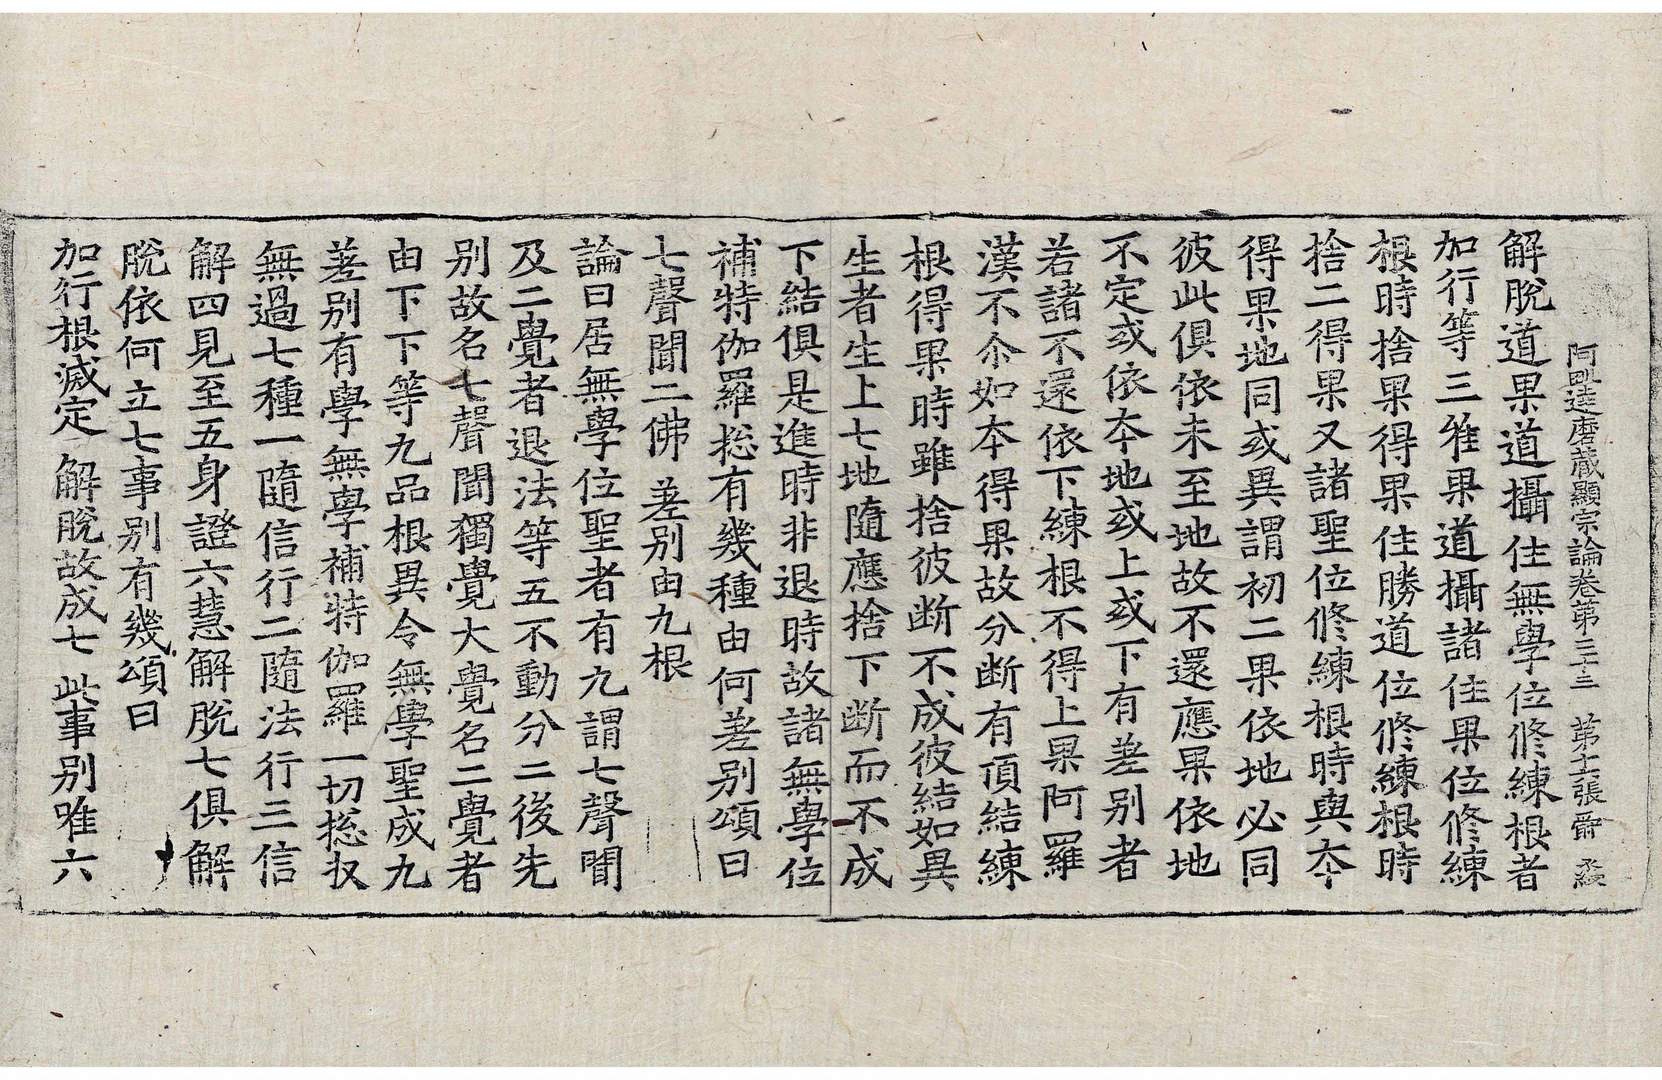 阿毗達磨藏顯宗論卷第三十三 第十二張
解脫道果道攝住無學位修練根者
加行等三唯果道攝諸住果位修練
根時捨果得果住勝道位修練根時
捨二得果又諸聖位修練根時與本
得果地同或異謂初二果依地必同
彼此俱依未至地故不還應果依地
不定或依本地或上或下有差别者
若諸不還依下練根不得上果阿羅
漢不尒如本得果故分断有頂結練
根得果時雖捨彼断不成彼結如異
生者生上七地隨應捨下断而不成
下結俱是進時非退時故諸無學位
補特伽羅捴有幾種由何差别頌曰
七聲聞二佛 差别由九根
論曰居無學位聖者有九謂七聲聞
及二覺者退法等五不動分二後先
别故名七聲聞獨覺大覺名二覺者
由下下等九品根異令無學聖成九
差别有學無學補特伽羅一切捴収
無過七種一隨信行二隨法行三信
解四見至五身證六慧解脫七俱解
脫依何立七事别有幾頌曰
加行根滅定 解脫故成七 此事别唯六